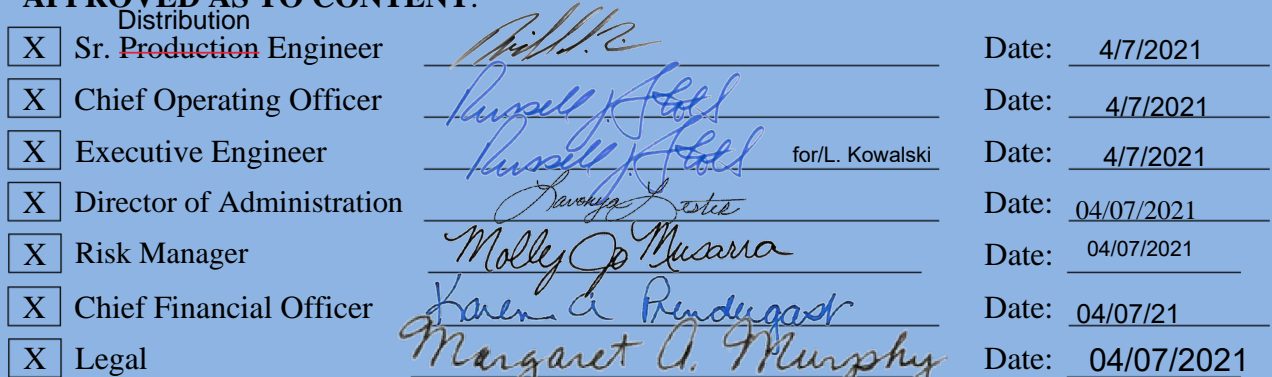 APPROVED AS TO CONTENT:
Distribution
X Sr. Production Engineer Date: 4/7/2021
X Chief Operating Officer Russell J Stoll Date: 4/7/2021
X Executive Engineer Russell J Stoll for/L. Kowalski Date: 4/7/2021
X Director of Administration Date: 04/07/2021
X Risk Manager Molly Jo Musarra Date: 04/07/2021
X Chief Financial Officer Karen A Prendergast Date: 04/07/21
X Legal Margaret A. Murphy Date: 04/07/2021